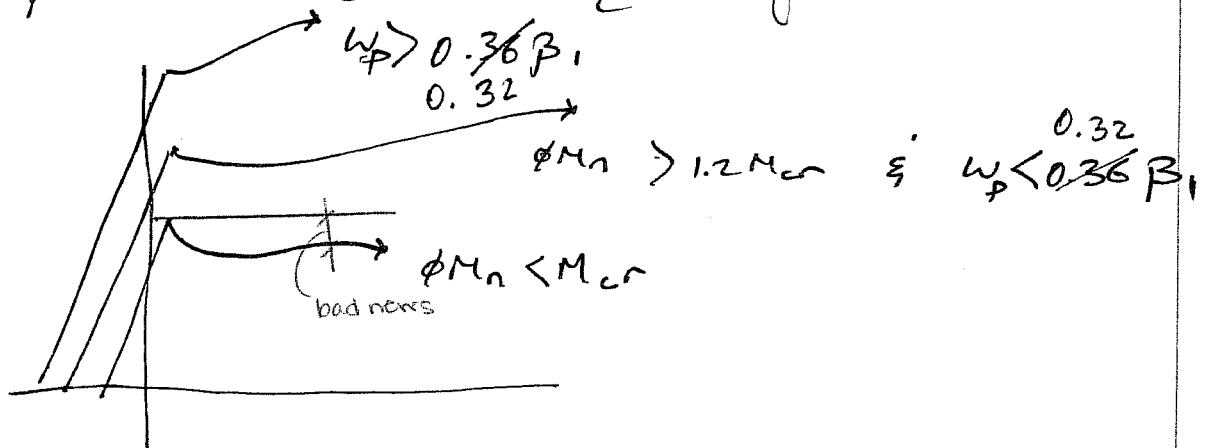 ωp > 0.36 β1
0.32
φMn > 1.2 Mcr & ωp < 0.36 β1
0.32
φMn < Mcr
bad news